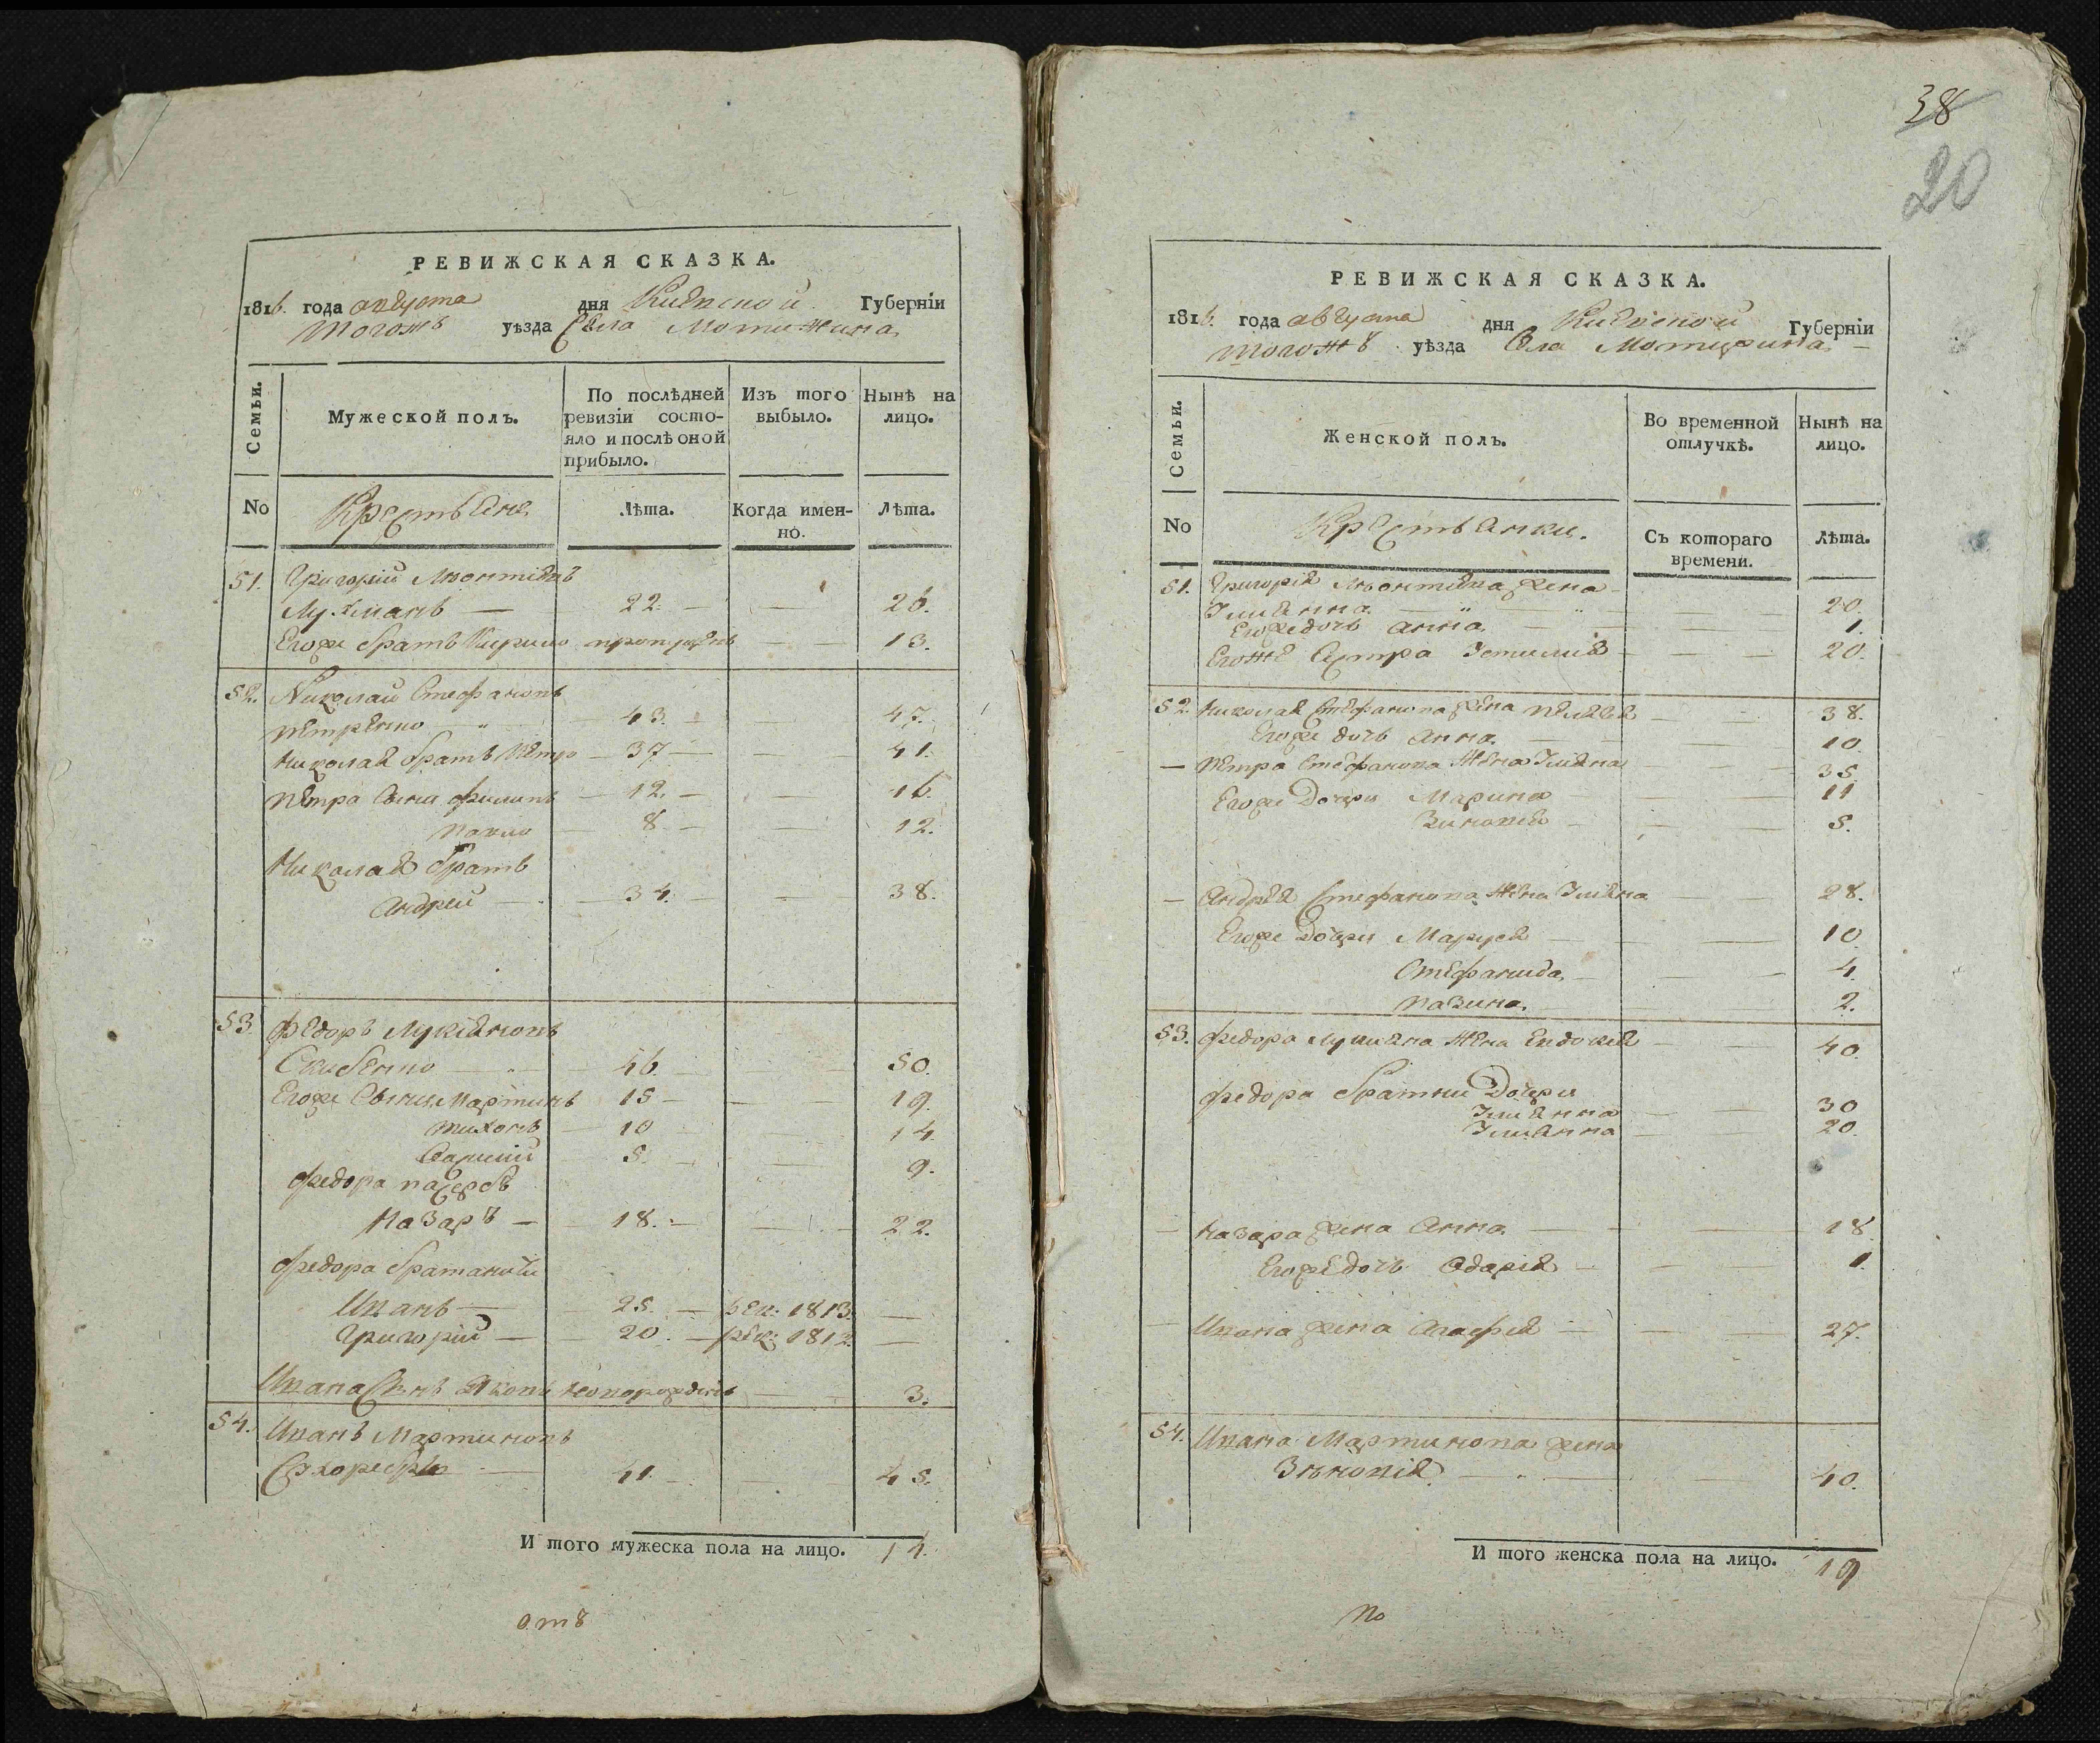 РЕВИЖСКАЯ СКАЗКА.
1816. года августа дня Киевской Губерніи
тогожъ уѣзда Села Мотижина
Семьи.
Мужеской полъ.
По послѣдней ревизіи состояло и послѣ оной прибыло.
Изъ того выбыло.
Нынѣ на лицо.
No
Крестьяне
Лѣта.
Когда именно.
Лѣта.
51. Григорій Леонтіевъ
22. — — 26.
Егоже братъ Кирило пропущенъ — — 13.
52. Николай Стефановъ
Петренко 43. — 47.
Николая братъ Петро — 37 — — 41.
Петра Сыни Филипъ — 12. — — 16.
Павло — 8. — — 12.
Николая братъ
Андрей — 34. — — 38.
53 Федоръ Лукіяновъ
Скибенко — 46. — 50.
Егоже Сыни Мартинъ 15 — — 19.
Тихонъ — 10 — 14.
5. — — 9.
Федора пасербъ
Назаръ — 18. — — 22.
Федора братаничи
Иванъ — 25. — рек: 1813. —
Григорій — 20. — рек: 1812. —
Ивана Сынъ Яковъ новорожденъ — 3.
54. Иванъ Мартиновъ
41. — 45.
И того мужеска пола на лицо. 14.
отъ
38
20
РЕВИЖСКАЯ СКАЗКА.
1816. года августа дня Киевской Губерніи
тогожъ уѣзда Села Мотижина —
Семьи.
Женской полъ.
Во временной отлучкѣ.
Нынѣ на лицо.
No
Крестьянки.
Съ котораго времени.
Лѣта.
51. Григорія Леонтіева жена
Уліянна — „ — „ — 20.
Егоже дочь Анна — — 1.
Егожъ Сестра Устимія — — 20.
52. Николая Стефанова жена — — 38.
Егоже дочь Анна. — — 10.
— Петра Стефанова жена Уліяна — — 35.
Егоже Дочери Марина — — 11
Зиновія — — 5.
— Андрея Стефанова жена Уліяна — — 28.
Егоже Дочери Маруся — — 10
Стефанида — — 4.
2.
53. Федора Лукияна жена Евдокія — — 40.
Федора братни Дочери
Уліянна — — 30
Уліянна — — 20.
— Назара жена Анна — — 18.
Егоже дочь Одарія — — 1.
— Ивана жена Агафія — — 27.
54. Ивана Мартинова жена
Зѣновія — — 40.
И того женска пола на лицо. 19
По